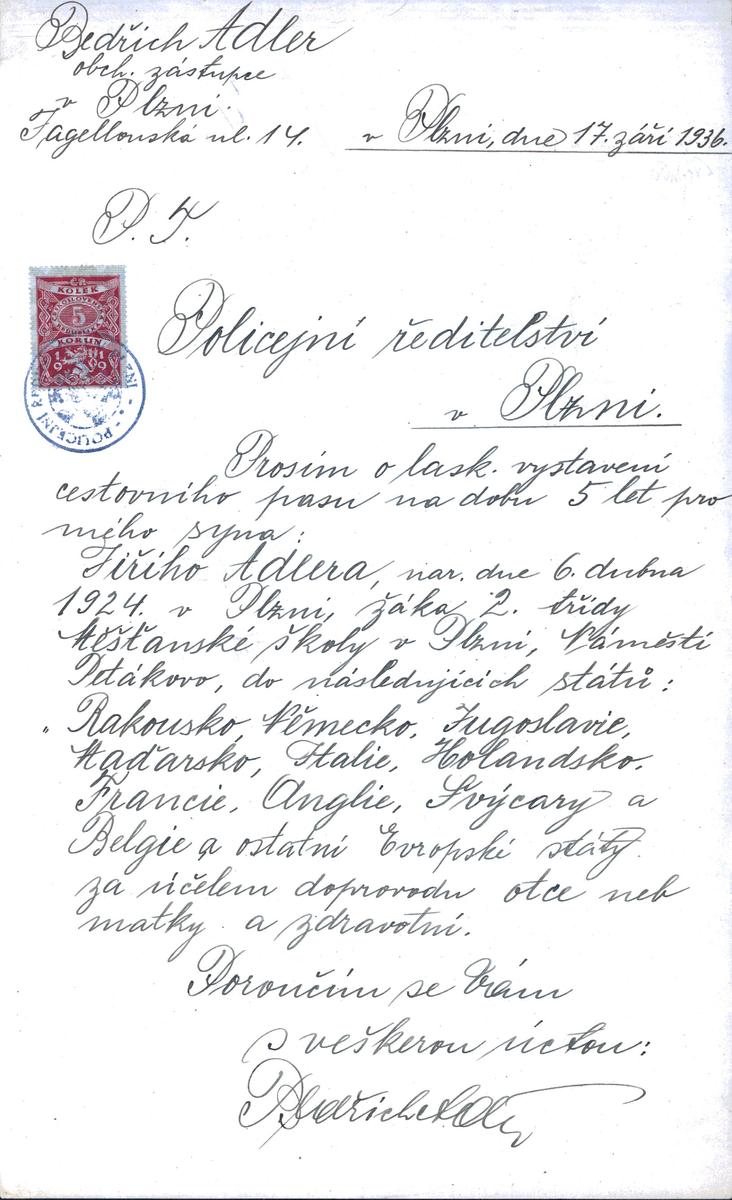 Bedřich Adler
obch. zástupce
v Plzni.
Jagellonská ul. 14.
v Plzni, dne 17. září 1936.
P. T.
ČR
KOLEK
5
KORUN
1919
POLICEJNÍ
Policejní ředitelství
v Plzni.
Prosím o lask. vystavení
cestovního pasu na dobu 5 let pro
mého syna:
Jiřího Adlera, nar. dne 6. dubna
1924. v Plzni, žáka 2. třídy
Měšťanské školy v Plzni, Náměstí
Petákovo, do následujících států:
„ Rakousko, Německo, Jugoslavie,
Maďarsko, Italie, Holandsko.
Francie, Anglie, Švýcary a
Belgie a ostatní Evropské státy
za účelem doprovodu otce neb
matky a zdravotní.
Poroučím se Vám
s veškerou úctou:
Bedřich Adler